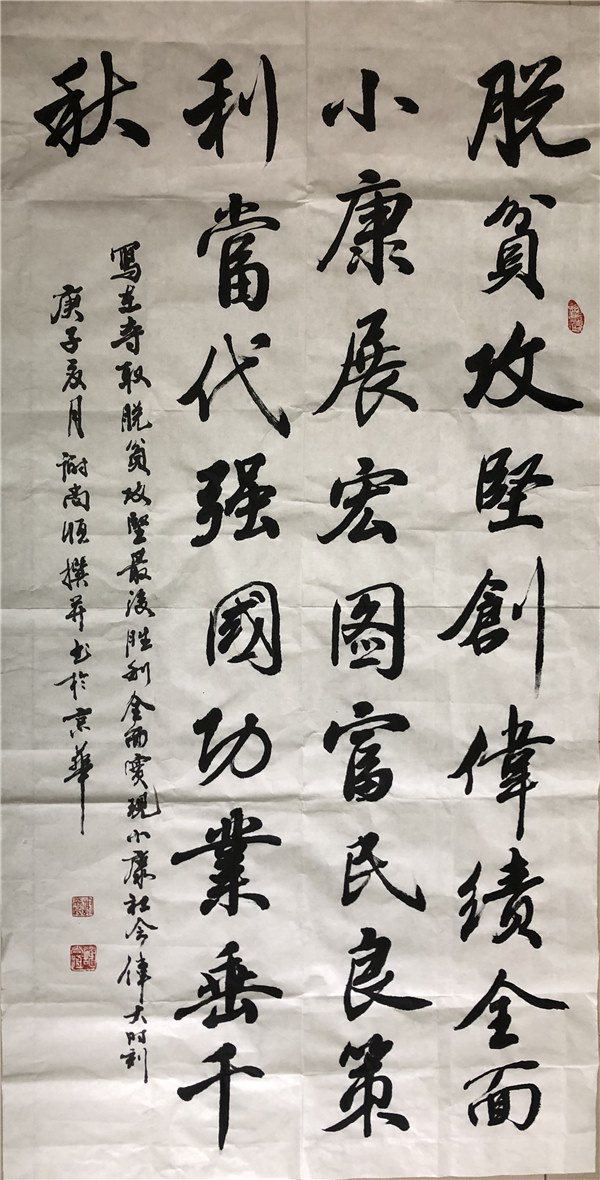 脱貧攻堅創偉績全面
小康展宏图富民良策
利當代强國功業垂千
秋
寫在夺取脱貧攻堅最後胜利全面實現小康社会偉大时刻
庚子夏月谢尚顺撰并书於京華